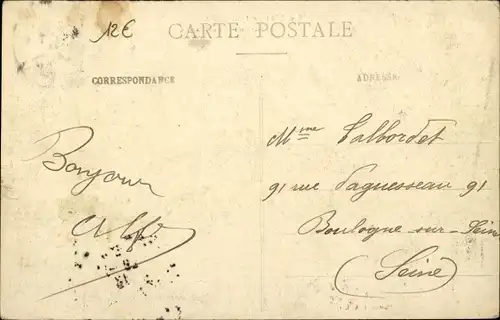 12€
CARTE POSTALE
CORRESPONDANCE
ADRESSE
Bonjour
Mme Valbordet
91 rue Faguesseau 91
Boulogne-sur-Sein
Seine